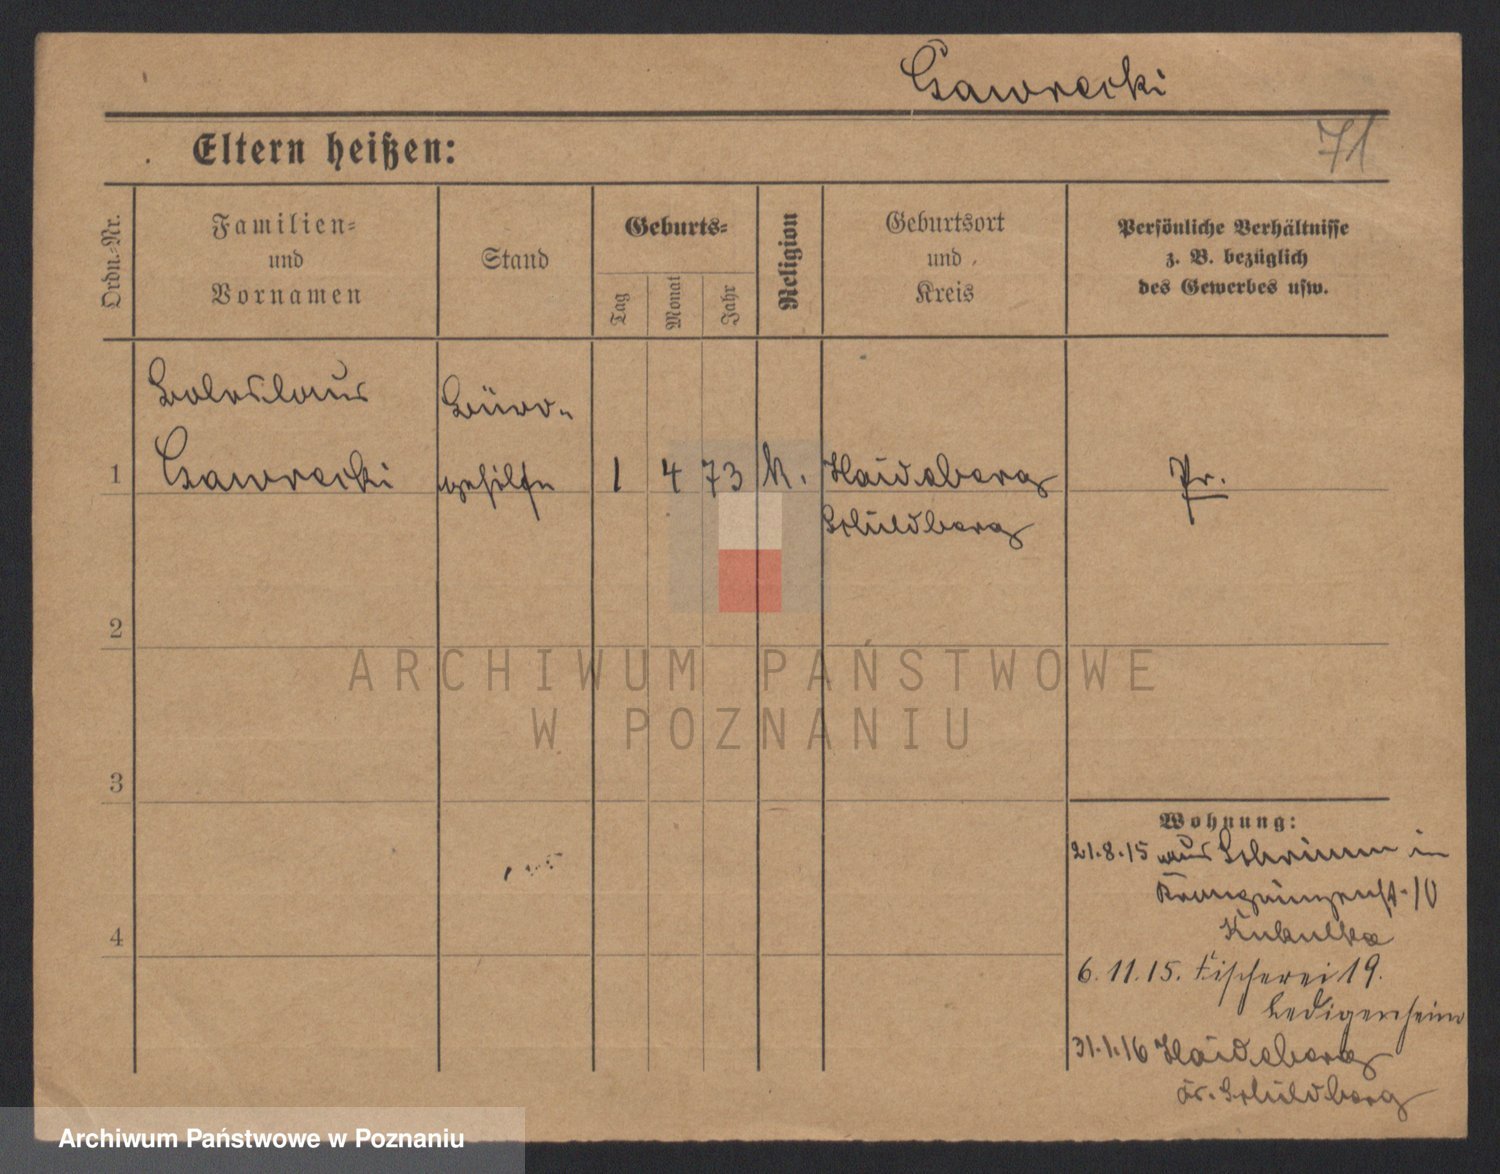 Gawrecki
71
Eltern heißen:
Ordn.-Nr.
Familien-
und
Vornamen
Stand
Geburts-
Tag
Monat
Jahr
Religion
Geburtsort
und
Kreis
Persönliche Verhältnisse
z. B. bezüglich
des Gewerbes usw.
Boleslaus
Büro-
1
Gawrecki
gehilfe
1
4
73
k.
Haideberg
Pr.
Schildberg
2
ARCHIWUM PAŃSTWOWE
W POZNANIU
3
Wohnung:
21.8.15 aus Schrimm in
Kronprinzenst. 10
Kukulka
4
6.11.15. Fischerei 19.
Ledigenheim
31.1.16 Haideberg
Kr. Schildberg
Archiwum Państwowe w Poznaniu